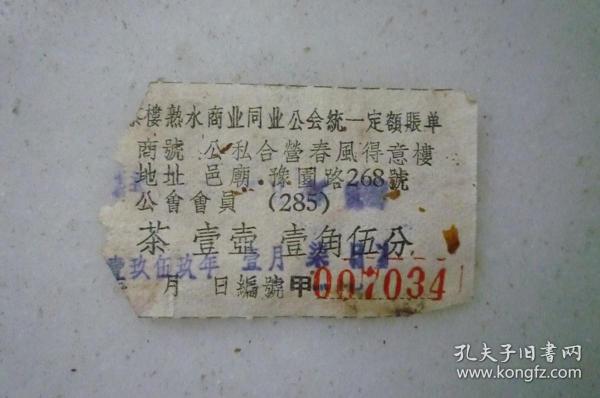 樓熟水商业同业公会統一定額賬单
商號 公私合營春風得意樓
地址 邑廟·豫園路268號
公會會員 (285)
茶 壹壺 壹角伍分
壹玖伍玖年 壹月 柒日
月 日編號甲007034
孔夫子旧书网
www.kongfz.com